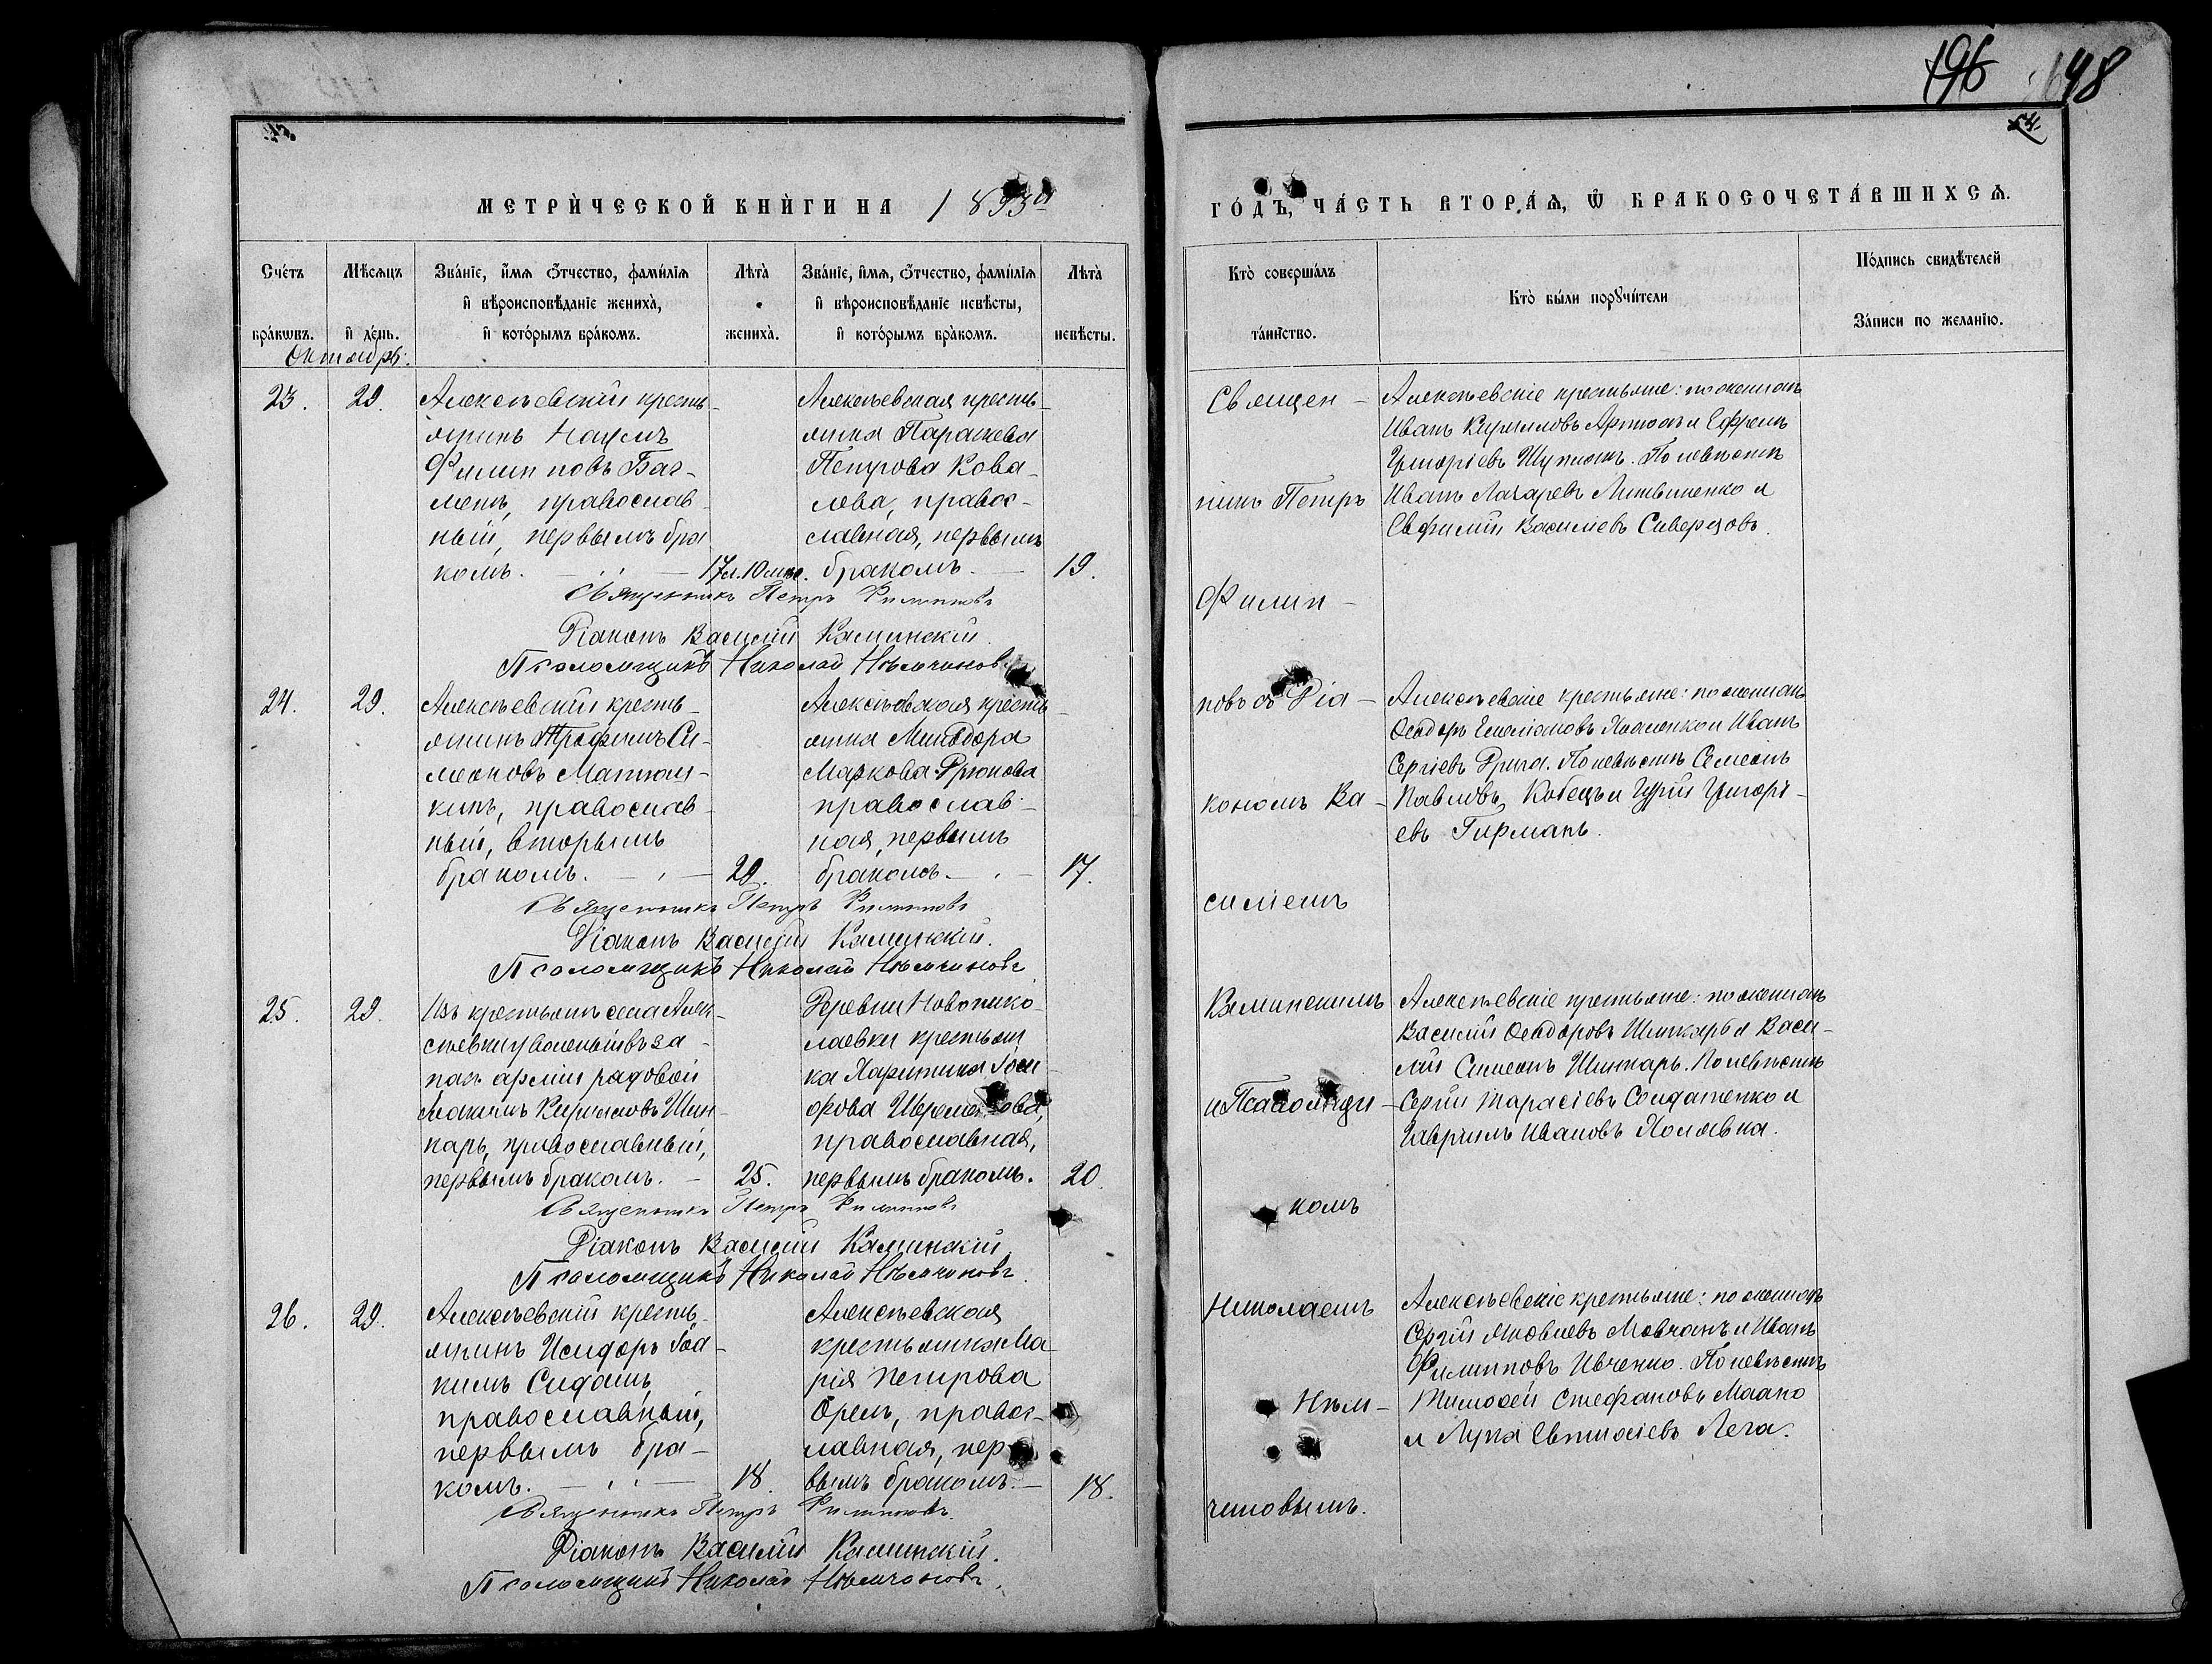 196 648
МЕТРИ́ЧЕСКОЙ КНИ́ГИ НА 1893й
ГО́ДЪ, ЧА́СТЬ ВТОРА́Ѧ, Ѿ БРАКОСОЧЕТА́ВШИХСѦ.
Сче́тъ бра́кѡвъ.
Мѣ́сѧцъ и҆ де́нь.
Зва́нїе, и҆́мѧ ѻ҆́тчество, фами́лїѧ
и҆ вѣроисповѣ́данїе жениха̀,
и҆ кото́рымъ бра́комъ.
Лѣта̀ жениха̀.
Зва́нїе, и҆́мѧ, ѻ҆́тчество, фами́лїѧ
и҆ вѣроисповѣ́данїе невѣ́сты,
и҆ кото́рымъ бра́комъ.
Лѣта̀ невѣ́сты.
Кто̀ соверша́лъ
та́инство.
Кто̀ бы́ли порꙋчи́тели
По́дпись свидѣ́телей
За́писи по жела́нїю.
Октябрь.
23. 29.
Алексѣевскій кресть-
янинъ Наумъ
Филипповъ Баг-
менъ, православ-
ный, первымъ бра
комъ. 17 л. 10 мѣс.
Алексѣевская кресть-
янка Параскева
Петрова Кова-
лева, правос-
славная, первымъ
бракомъ. 19.
Алексѣевскіе крестьяне: по женихѣ
Иванъ Кирилловъ и Ефремъ
Григоріевъ. По невѣстѣ
Иванъ Лазаревъ Литвиненко и
Евфимій Василіевъ Сиверцовъ.
Священникъ Петръ Филипповъ
Діаконъ Василій Каминскій.
Псаломщикъ Николай Нѣмчиновъ
24. 29.
Алексѣевскій кресть-
янинъ Трофимъ Си-
меоновъ Матюш-
кинъ, православ-
ный, вторымъ
бракомъ. 29.
Алексѣевская кресть-
янка Минодора
Маркова Дрюкова
православ-
ная, первымъ
бракомъ. 17.
Алексѣевскіе крестьяне: по женихѣ
Ѳеодоръ и Иванъ
Сергіевъ Дрига. По невѣстѣ Симеонъ
Павловъ Кобецъ и Гурій Григорі-
евъ Гирманъ.
Священникъ Петръ Филипповъ
Діаконъ Василій Каминскій.
Псаломщикъ Николай Нѣмчиновъ
25. 29.
Изъ крестьянъ села Алек-
сѣевки уволенный въ за-
пасъ арміи рядовой
Максимъ Кирилловъ Шин-
карь, православный,
первымъ бракомъ. 25.
Деревни Новонико
лаевки крестьян
ка Харитина Іоси
фова
православная,
первымъ бракомъ. 20.
Алексѣевскіе крестьяне: по женихѣ
Василій Ѳеодоровъ Шинкарь и Васи-
лій Симеонъ Шинкарь. По невѣстѣ
Сергій Тарасіевъ Солдатенко и
Гавріилъ Ивановъ Холявка.
Священникъ Петръ Филипповъ
Діаконъ Василій Каминскій.
Псаломщикъ Николай Нѣмчиновъ
26. 29.
Алексѣевскій кресть-
янинъ Исидоръ Іоа-
кимъ Сидашъ,
православный,
первымъ бра-
комъ. 18.
Алексѣевская
крестьянка Ма
рія Петрова
Орелъ, правос-
лавная, пер
вымъ бракомъ. 18.
Алексѣевскіе крестьяне: по женихѣ
Сергій Яковлевъ Мовчанъ и Иванъ
Филипповъ Ивченко. По невѣстѣ
Тимоѳей Стефановъ
и Лука Евтихіевъ Лега.
Священникъ Петръ Филипповъ.
Діаконъ Василій Каминскій.
Псаломщикъ Николай Нѣмчиновъ.
Священ-
никъ Петръ
Филип-
повъ съ Діа-
кономъ Ва-
силіемъ
Каминскимъ
и Псаломщи-
комъ
Николаемъ
Нѣм-
чиновымъ.